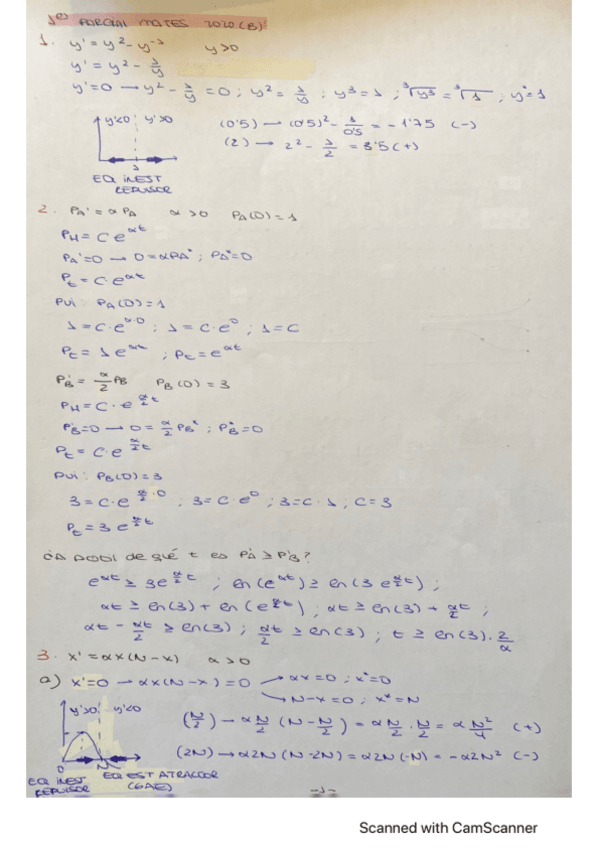 1er PARCIAL MATES 2020 (B)
1. y' = y² - y⁻¹   y>0
y' = y² - 1/y
y'=0 → y² - 1/y = 0 ; y² = 1/y ; y³ = 1 ; ³√y³ = ³√1 ; y* = 1
y'<0 y'>0   (0'5) → (0'5)² - 1/0'5 = -1'75 (-)
(2) → 2² - 1/2 = 3'5 (+)
1
EQ INEST
REPULSOR
2. PA' = αPA   α>0   PA(0)=1
PH = C e^αt
PA'=0 → 0=αPA* ; PA*=0
Pt = C·e^αt
PVI: PA(0)=1
1 = C·e^α·0 ; 1 = C·e⁰ ; 1=C
Pt = 1e^αt ; Pt = e^αt
PB' = α/2 PB   PB(0) = 3
PH = C·e^α/2t
PB'=0 → 0 = α/2 PB* ; PB*=0
Pt = C·e^α/2t
PVI: PB(0)=3
3 = C·e^α/2·0 ; 3 = C·e⁰ ; 3=C·1 ; C=3
Pt = 3e^α/2t
de qué t es PA ≥ PB?
e^αt ≥ 3e^α/2t ; en(e^αt) ≥ en(3e^α/2t) ;
αt ≥ en(3) + en(e^α/2t) ; αt ≥ en(3) + α/2t ;
αt - αt/2 ≥ en(3) ; αt/2 ≥ en(3) ; t ≥ en(3)·2/α
3. x' = αx(N-x)   α>0
a) x'=0 → αx(N-x)=0 → αx=0 ; x*=0
→ N-x=0 ; x*=N
y'>0 y'<0   (N/2) → αN/2 (N-N/2) = αN/2·N/2 = αN²/4 (+)
(2N) → α2N(N-2N) = α2N(-N) = -α2N² (-)
0 N
EQ INEST
REPULSOR
EQ EST ATRACTOR
(GAE)
-1-
Scanned with CamScanner